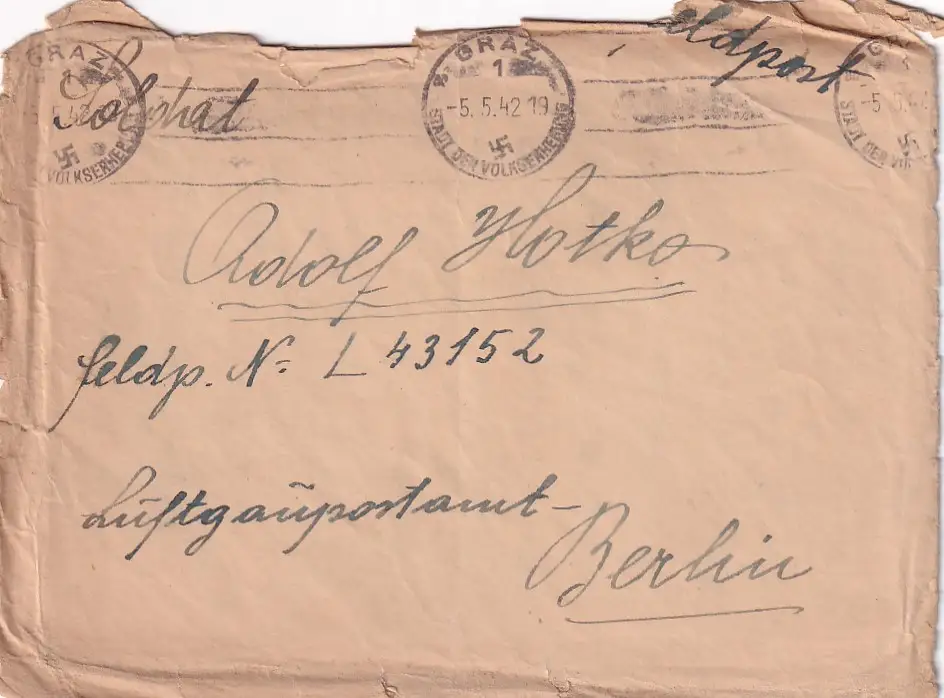 Feldpost
GRAZ
1
-5.5.42 19
STADT DER VOLKSERHEBUNG
Soldat
Adolf Hotko
Feldp. No L 43152
Luftgaupostamt-
Berlin